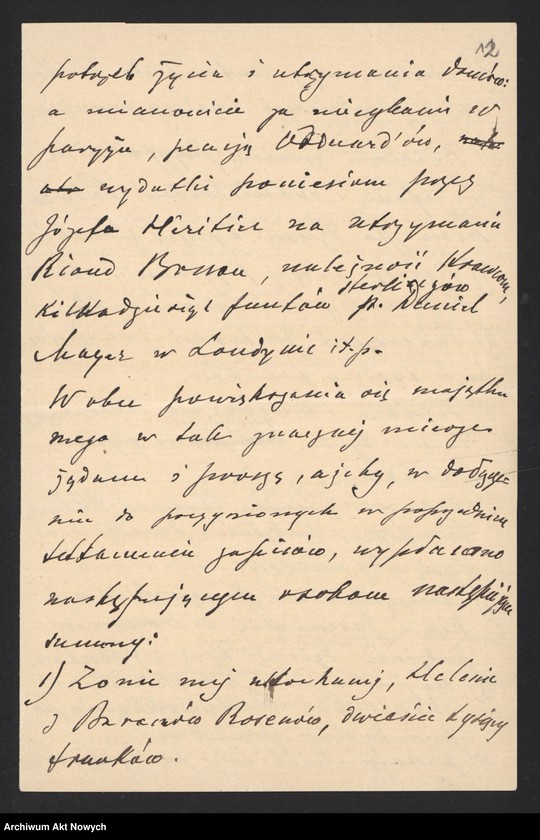 12
potrzeb życia i utrzymania domów:
a mianowicie za mieszkanie w
Paryżu, pensję Edouard'ów,
wydatki poniesione przez
Józefa na utrzymanie
Riond Bosson, należność Krawcom,
Kilkadziesiąt funtów sterlingów p. Daniel
Mayer w Londynie i t. p.
Wobec powiększenia się majątku
mego w tak znacznej mierze
żądam i proszę, ażeby, w dołącze-
niu do poczynionych w poprzednim
testamencie zapisów, wypłacono
następującym osobom następujące
summy:
1) Żonie mej ukochanej, Helenie
z Baronów Rosenów, dwieście tysięcy
franków.
Archiwum Akt Nowych